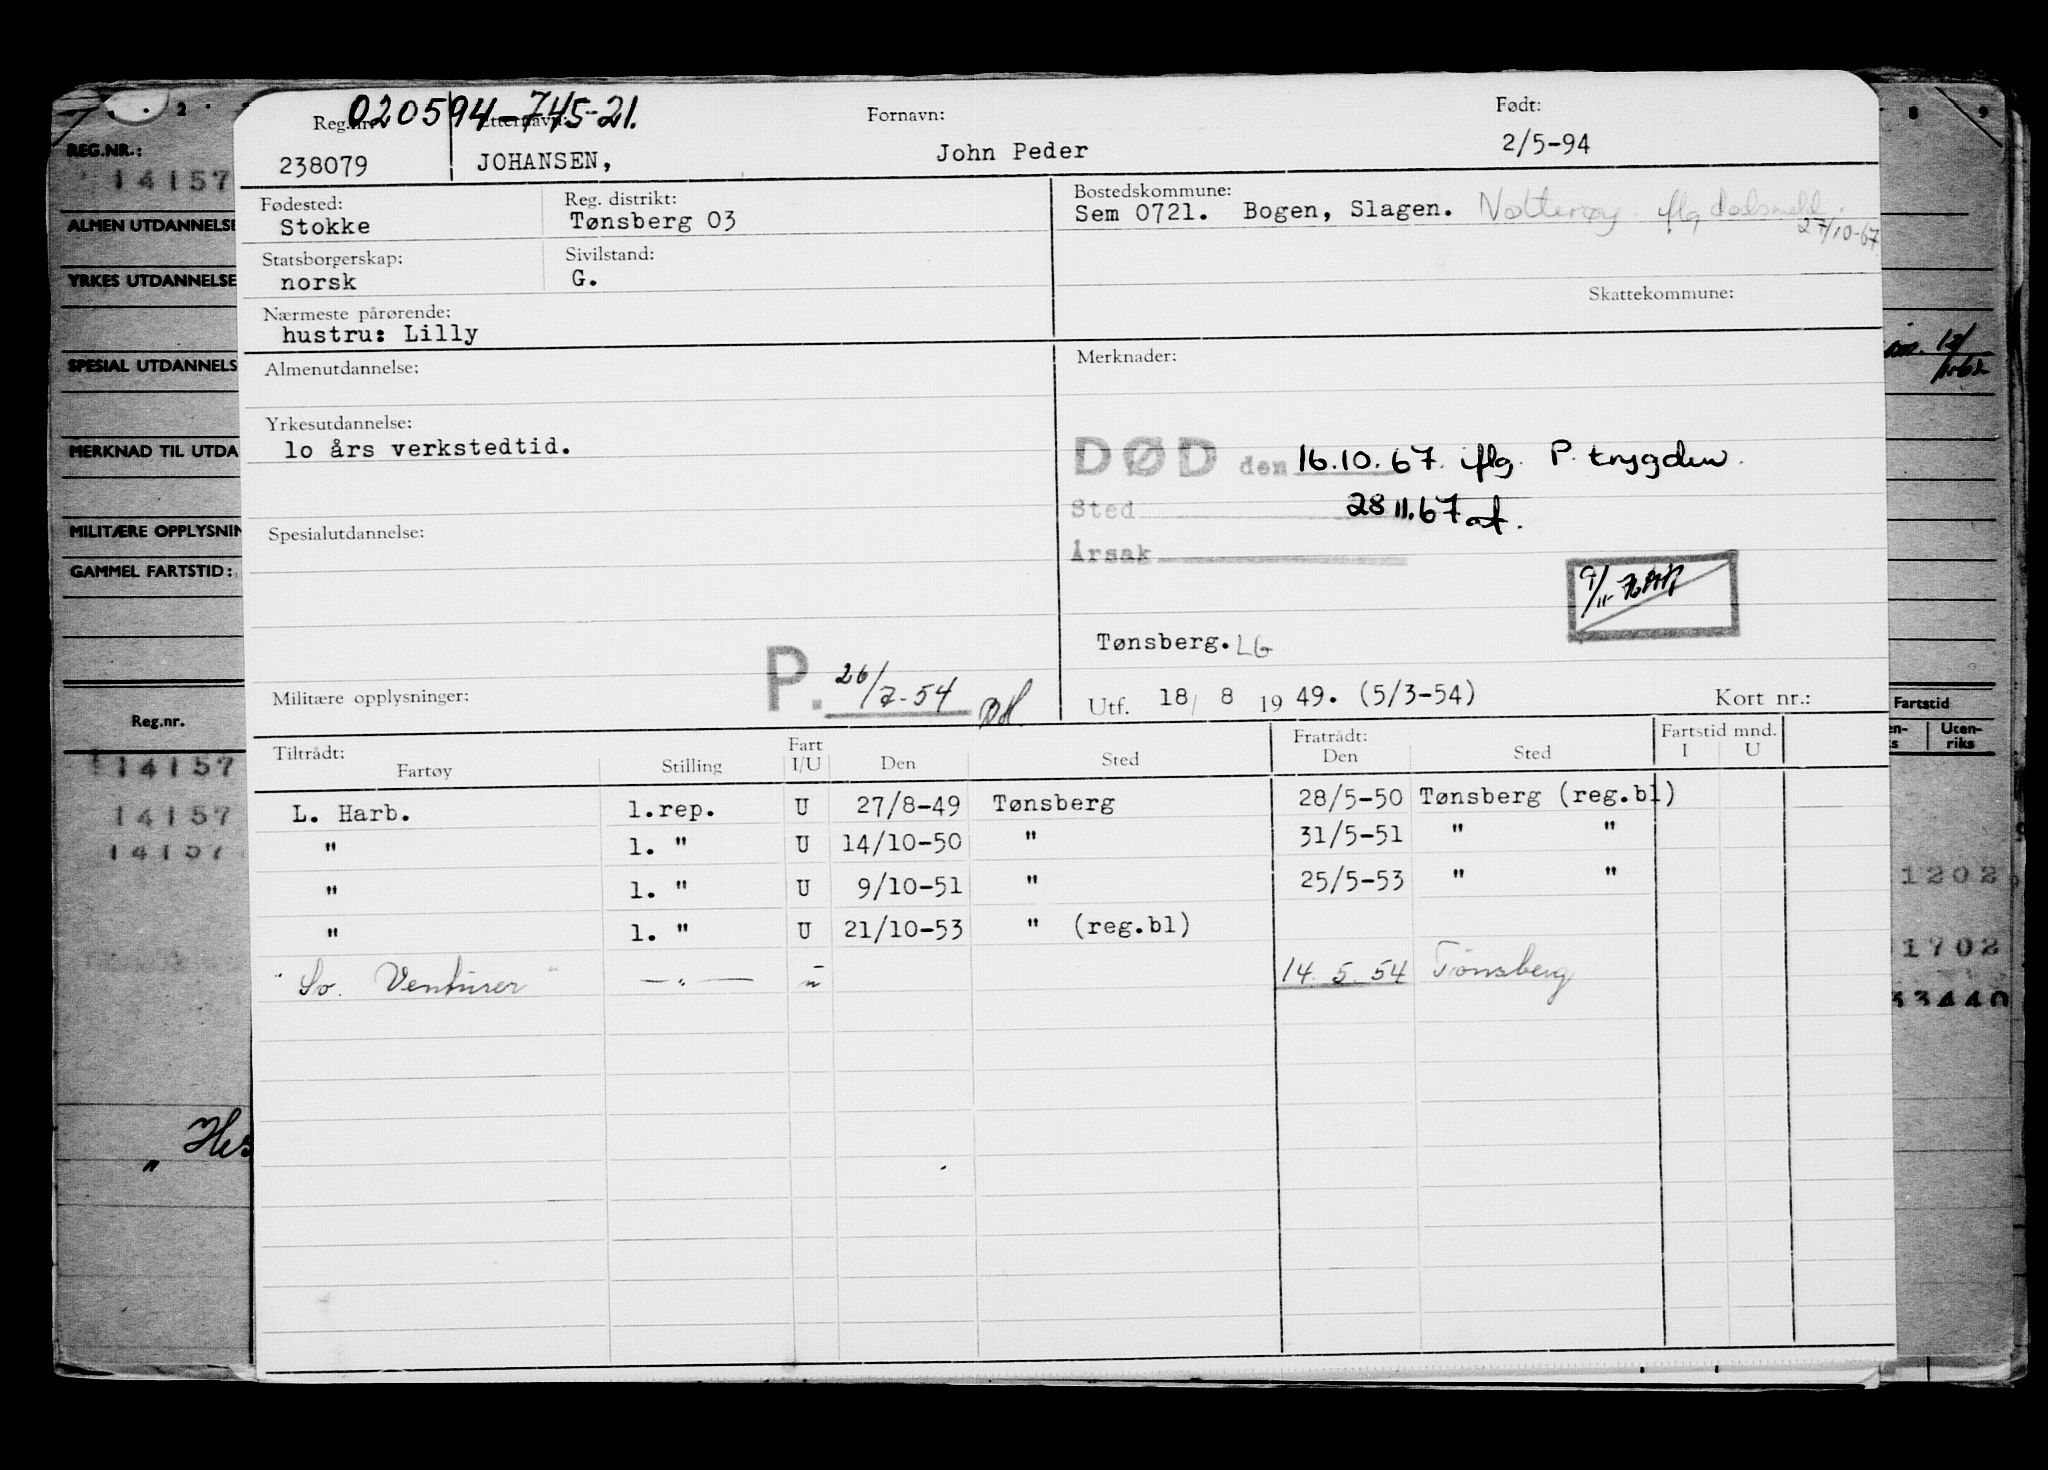 020594-745-21.
Reg.nr. Etternavn: Fornavn: Født:
238079 JOHANSEN, John Peder 2/5-94
Fødested: Reg. distrikt: Bostedskommune:
Stokke Tønsberg 03 Sem 0721. Bogen, Slagen. Nøtterøy. flg dødsmeld.
27/10-67
Statsborgerskap: Sivilstand:
norsk G.
Skattekommune:
Nærmeste pårørende:
hustru: Lilly
Almenutdannelse: Merknader:
Yrkesutdannelse:
lo års verkstedtid.
DØD den 16.10.67. iflg. P. trygden.
Sted 28 11.67
Årsak
Spesialutdannelse:
9/11-
Tønsberg. LG
Militære opplysninger: P. 26/7-54
Utf. 18/ 8 19 49. (5/3-54) Kort nr.:
Tiltrådt: Fart Fratrådt: Fartstid mnd.
Fartøy Stilling I/U Den Sted Den Sted I U
L. Harb. 1.rep. U 27/8-49 Tønsberg 28/5-50 Tønsberg (reg.bl)
" 1. " U 14/10-50 " 31/5-51 " "
" 1. " U 9/10-51 " 25/5-53 " "
" 1. " U 21/10-53 " (reg.bl)
"So. Venturer" —"— u 14. 5. 54 Tønsberg
2
REG.NR.:
14157
ALMEN UTDANNELSE
YRKES UTDANNELSE
SPESIAL UTDANNELS
MERKNAD TIL UTDA
MILITÆRE OPPLYSNIN
GAMMEL FARTSTID:
Reg.nr.
14157
14157
14157
Hes
"
8 9
Fartstid
en-
ks
Uten-
riks
1202
1702
33440